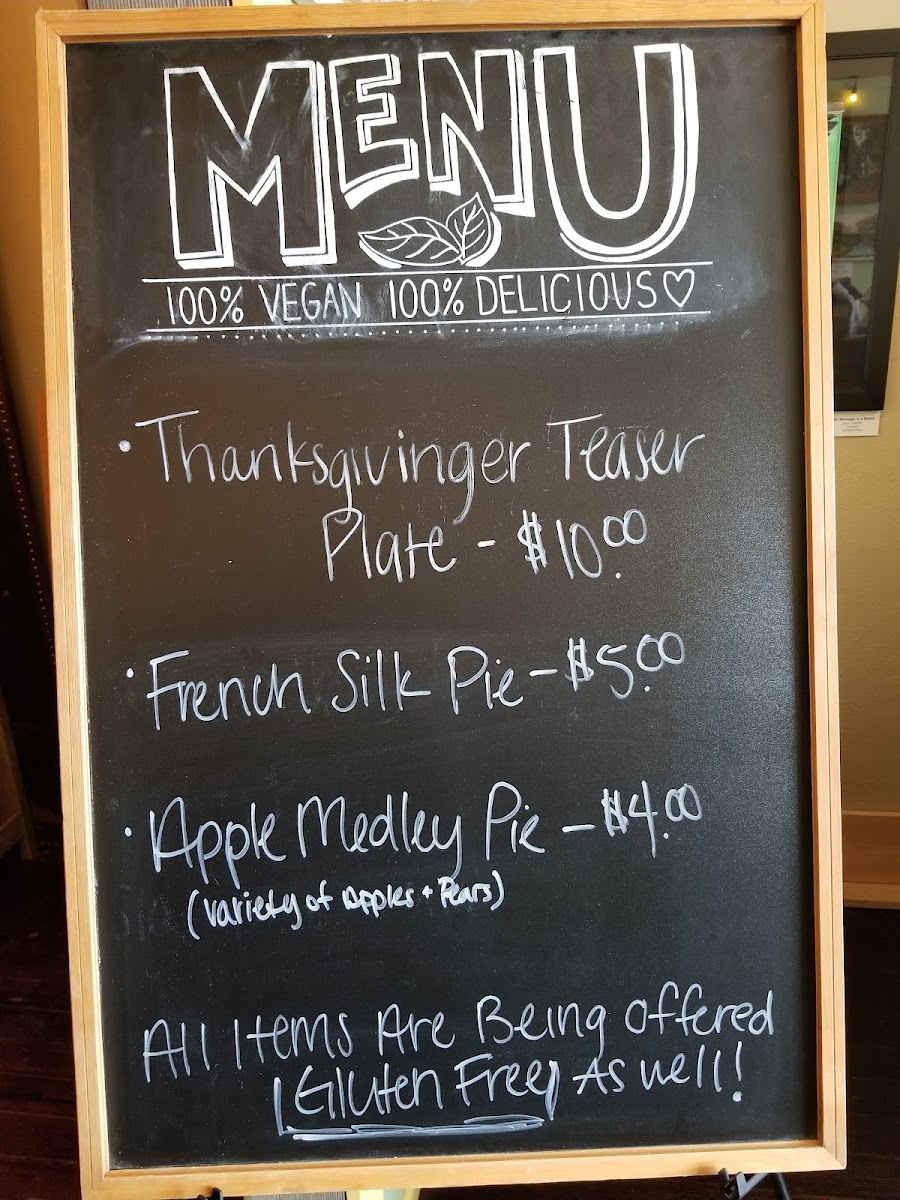 MENU
100% VEGAN 100% DELICIOUS♡
• Thanksgivinger Teaser
Plate - $10.00
• French Silk Pie - $5.00
• Apple Medley Pie - $4.00
(variety of Apples + Pears)
All Items Are Being Offered
Gluten Free As well!